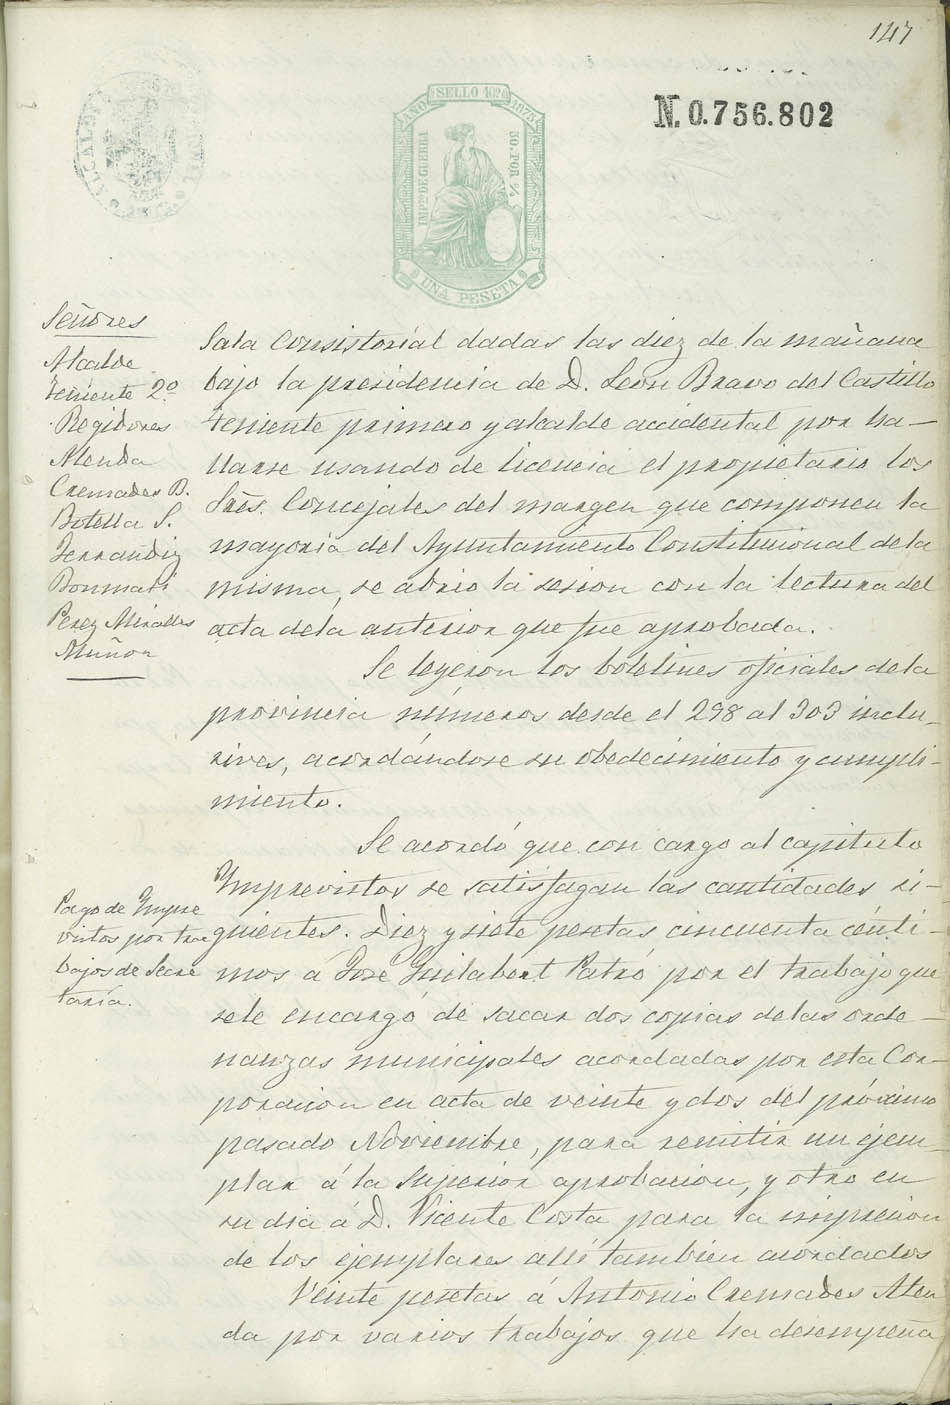 147
ALCALDIA
AÑO SELLO 10º 1875
IMPtº DE GUERRA
50. POR %
UNA PESETA
N. 0.756.802
Señores
Alcalde
Teniente 2º
Regidores
Alenda
Cremades B.
Botella S.
Ferrandiz
Bonmati
Perez Miralles
Muñoz
Sala Consistorial dadas las diez de la mañana
bajo la presidencia de D. Leon Bravo del Castillo
teniente primero y alcalde accidental por ha-
llarse usando de licencia el propietario los
Sres. Concejales del margen que componen la
mayoria del Ayuntamiento Constitucional de la
misma, se abrio la sesion con la lectura del
acta dela anterior que fue aprobada.
Se leyeron los boletines oficiales dela
provincia números desde el 298 al 303 inclu-
sives, acordándose su obedecimiento y cumpli-
miento.
Se acordó que con cargo al capitulo
Imprevistos se satisfagan las cantidades si-
guientes. Diez y siete pesetas cincuenta cénti-
mos á José Guilabert Patró por el trabajo que
sele encargó de sacar dos copias delas orde-
nanzas municipales acordadas por esta Cor-
poracion en acta de veinte y dos del próximo
pasado Noviembre, para remitir un ejem-
plar á la Superior aprobacion, y otro en
su dia á D. Vicente Costa para la impresion
de los ejemplares allí tambien acordados
Veinte pesetas á Antonio Cremades Alen
da por varios trabajos que ha desempeña
Pago de Impre
vistos por tra
bajos de Secre
taría.